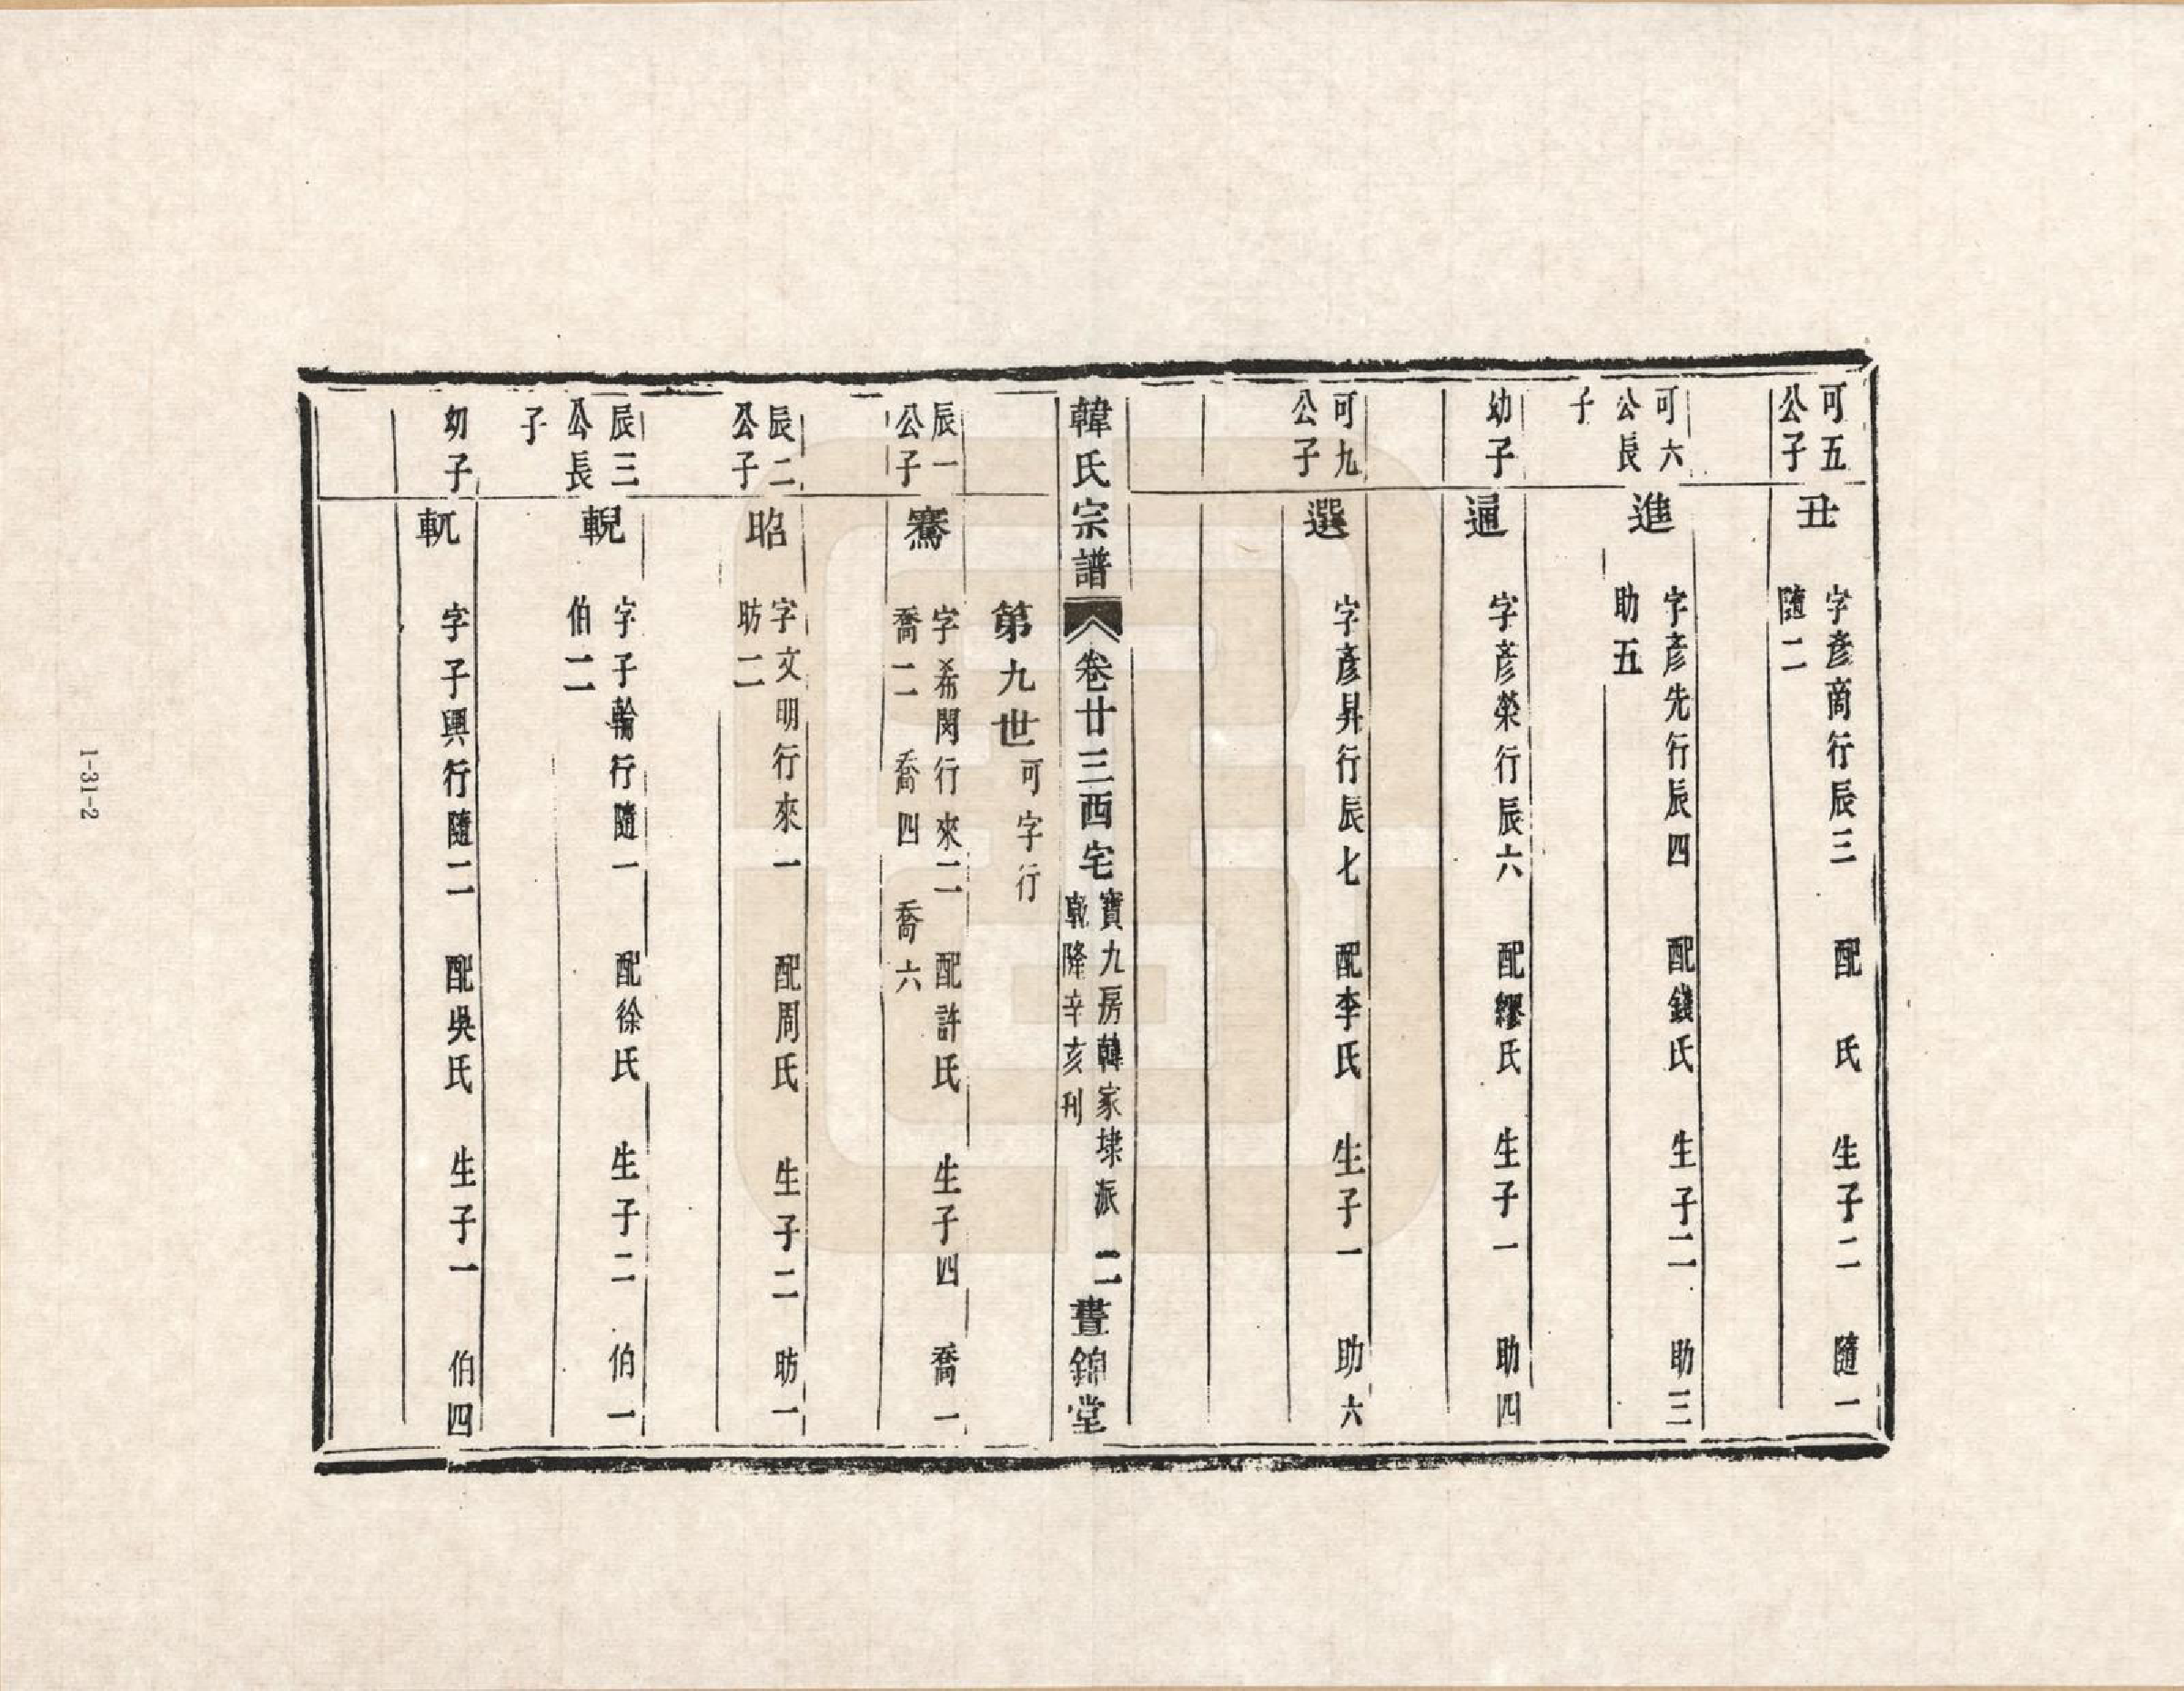 可五
公子
丑
字彥商行辰三　配　氏　生子二　隨一
隨二
可六
公長
子
進
字彥先行辰四　配錢氏　生子二　助三
助五
幼子
逼
字彥榮行辰六　配繆氏　生子一　助四
可九
公子
選
字彥昇行辰七　配李氏　生子一　助六
韓氏宗譜　卷廿三西宅
寶九房韓家埭派
乾隆辛亥刊
二
晝錦堂
第九世
可字行
辰一
公子
騫
字希閔行來二　配許氏　生子四　喬一
喬二　喬四　喬六
辰二
公子
昭
字文明行來一　配周氏　生子二　昉一
昉二
辰三
公長
子
輗
字子輪行隨一　配徐氏　生子二　伯一
伯二
幼子
軏
字子興行隨二　配吳氏　生子一　伯四
1-31-2